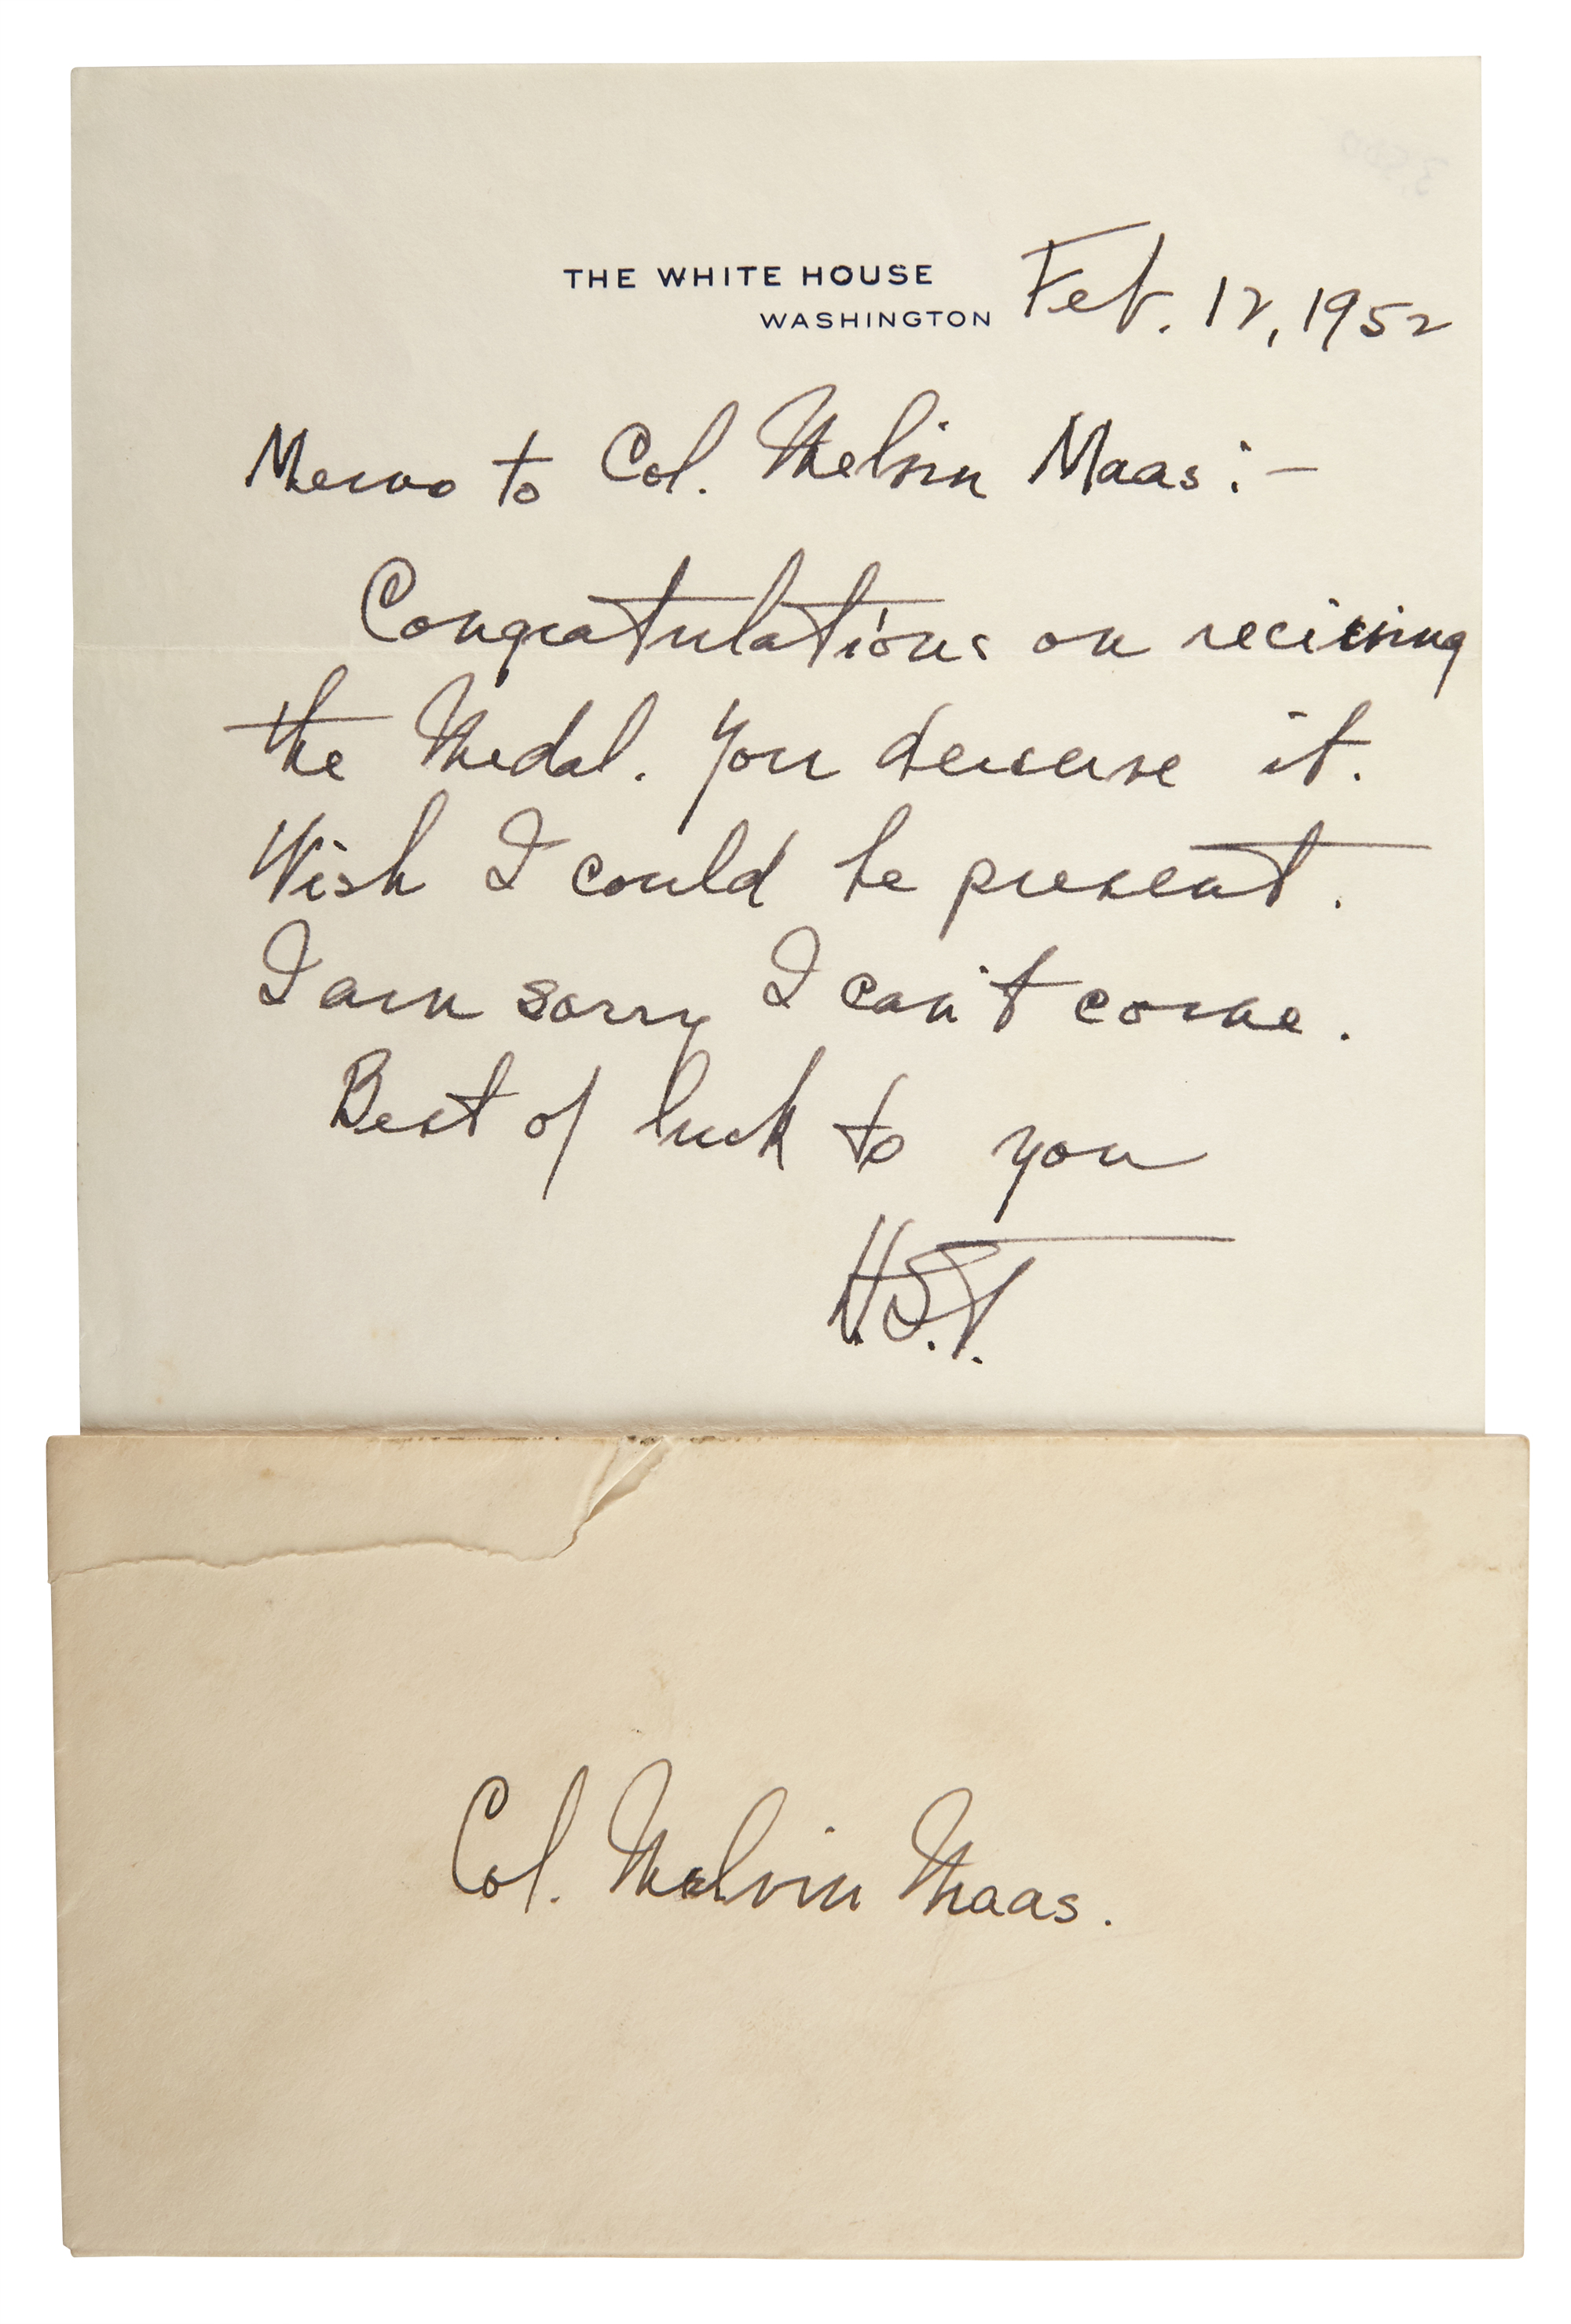 THE WHITE HOUSE
WASHINGTON
Feb. 12, 1952
Memo to Col. Melvin Maas:—
Congratulations on reciving
the Medal. You deserve it.
Wish I could be present.
I am sorry I can't come.
Best of luck to you
H.S.T.
Col. Melvin Maas.